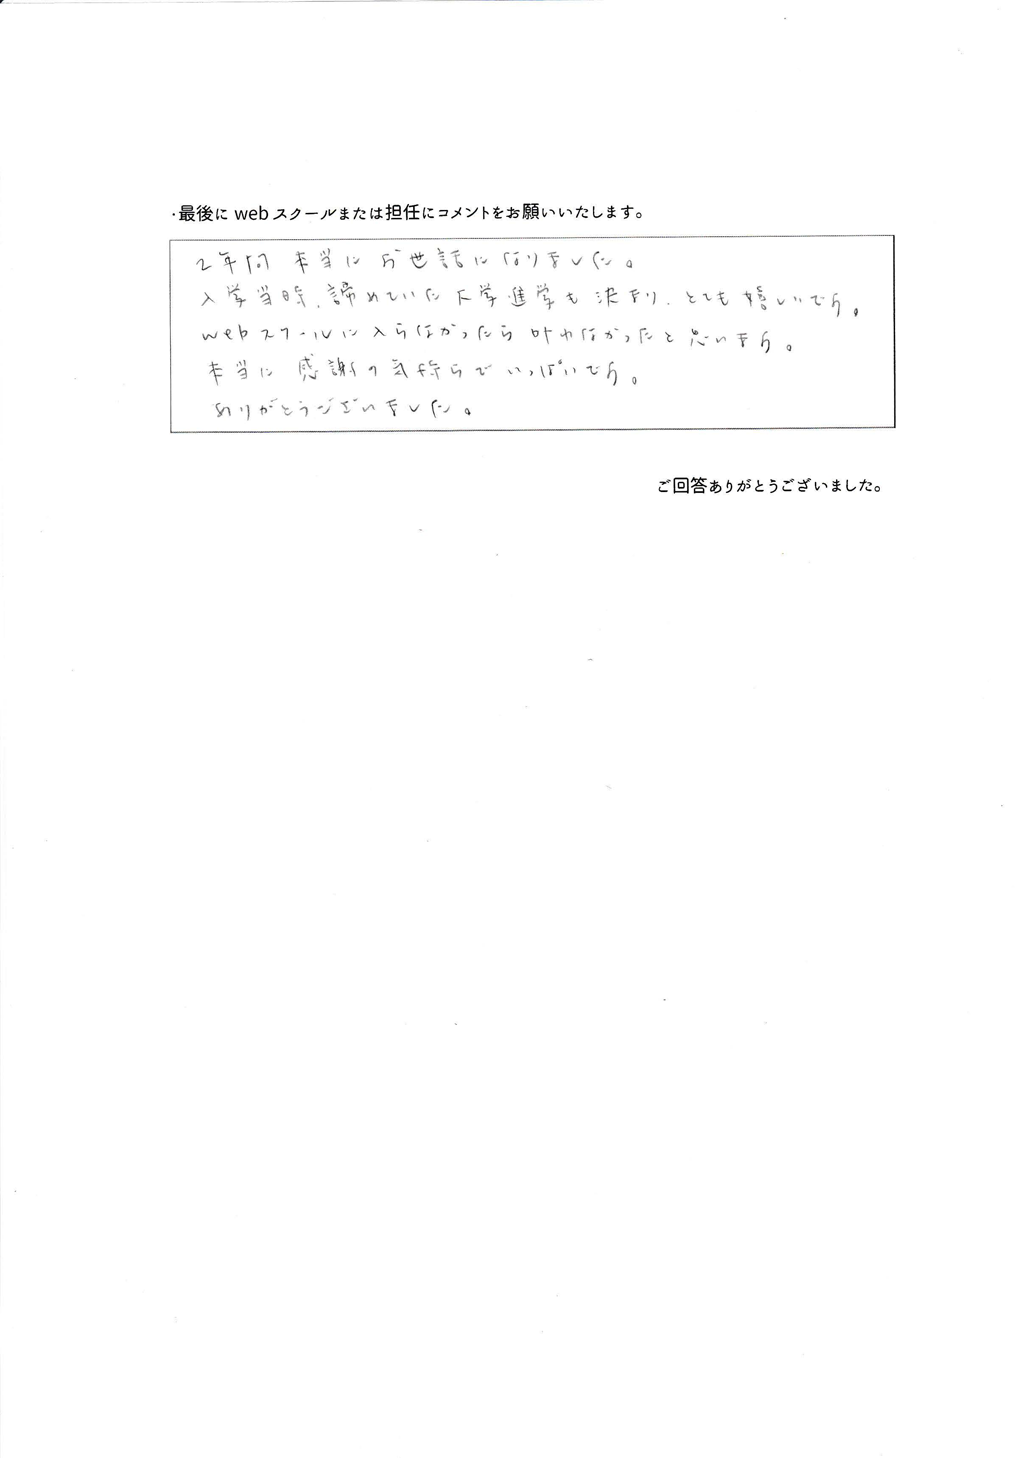 ・最後に webスクールまたは担任にコメントをお願いいたします。
2年間 本当に お世話になりました。
入学当時、諦めていた大学進学も決まり、とても嬉しいです。
webスクールに入らなかったら叶わなかったと思います。
本当に 感謝の気持ちでいっぱいです。
ありがとうございました。
ご回答ありがとうございました。